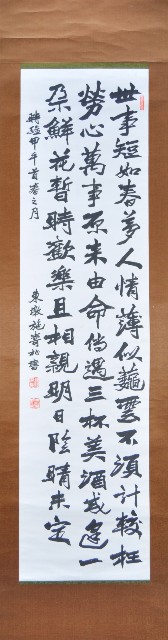 世事短如春夢人情薄似龝雲不須計較枉
勞心萬事原來由命倘遇三杯美酒或逢一
朵鮮花暫時歡樂且相親明日陰晴未定
時維甲午首春之月
東墩施壽柏書